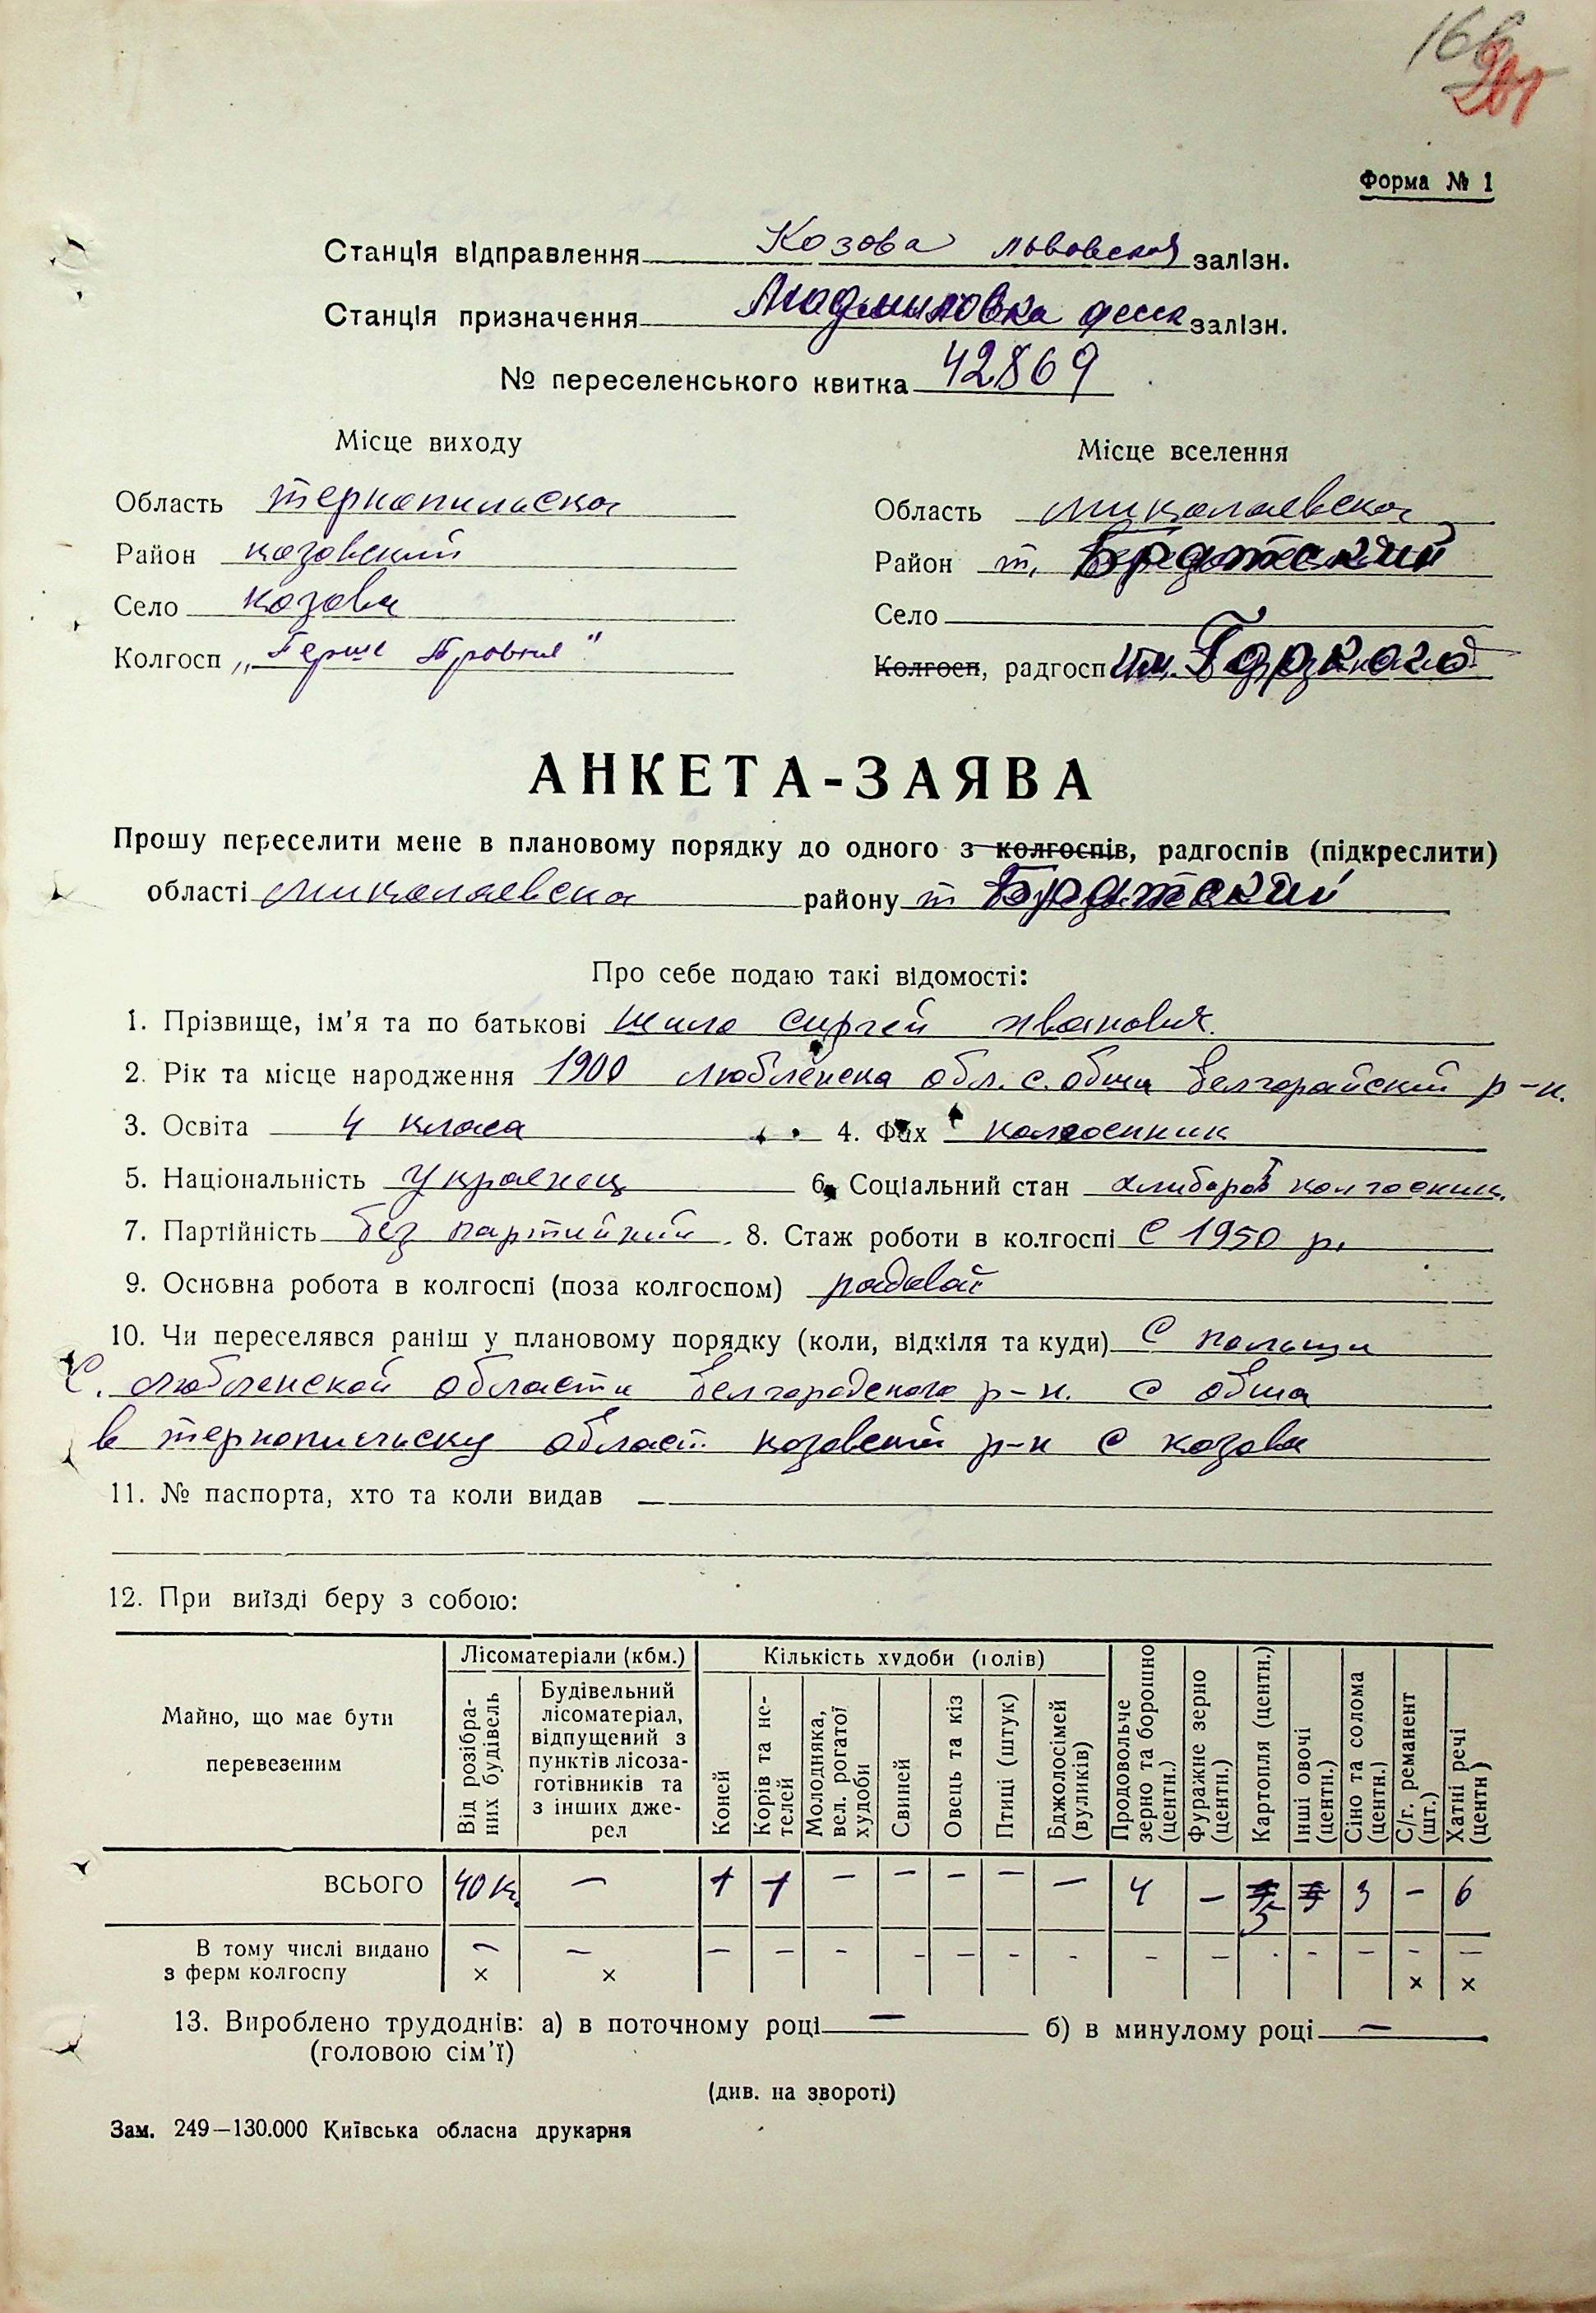 201
Форма № 1
Станція відправлення Козова львовской залізн.
Станція призначення Людмиловка одеск залізн.
№ переселенського квитка 42869
Місце виходу
Область тернопильска
Район козовский
Село козова
Колгосп „Перше Травня"
Місце вселення
Область миколаевска
Район т. Братский
Село
Колгосп, радгосп им. Горкого
АНКЕТА-ЗАЯВА
Прошу переселити мене в плановому порядку до одного з колгоспів, радгоспів (підкреслити)
області миколаевска району т Братский
Про себе подаю такі відомості:
1. Прізвище, ім'я та по батькові Шило Сиргей Иванович.
2. Рік та місце народження 1900 люблинска обл. с. обша Белгорайский р-н.
3. Освіта 4 класа 4. Фах колгоспник
5. Національність Украенец 6. Соціальний стан хлибороб колгоспник.
7. Партійність без партийний. 8. Стаж роботи в колгоспі с 1950 р.
9. Основна робота в колгоспі (поза колгоспом) радовай
10. Чи переселявся раніш у плановому порядку (коли, відкіля та куди) с польщи
С. люблинской области белгородского р-н. с обша
в тернопильску област. козовский р-н с козова
11. № паспорта, хто та коли видав —
12. При виїзді беру з собою:
Майно, що має бути перевезеним
Лісоматеріали (кбм.)
Від розібраних будівель
Будівельний лісоматеріал, відпущений з пунктів лісозаготівників та з інших джерел
Кількість худоби (голів)
Коней
Корів та нетелей
Молодняка, вел. рогатої худоби
Свиней
Овець та кіз
Птиці (штук)
Бджолосімей (вуликів)
Продовольче зерно та борошно (центн.)
Фуражне зерно (центн.)
Картопля (центн.)
Інші овочі (центн.)
Сіно та солома (центн.)
С/г. реманент (шт.)
Хатні речі (центн)
ВСЬОГО 40 к. — 1 1 — — — — — 4 — 5 3 — 6
В тому числі видано — — — — — — — — — — — — — — —
з ферм колгоспу × × × ×
13. Вироблено трудоднів: а) в поточному році — б) в минулому році —
(головою сім'ї)
(див. на звороті)
Зам. 249—130.000 Київська обласна друкарня